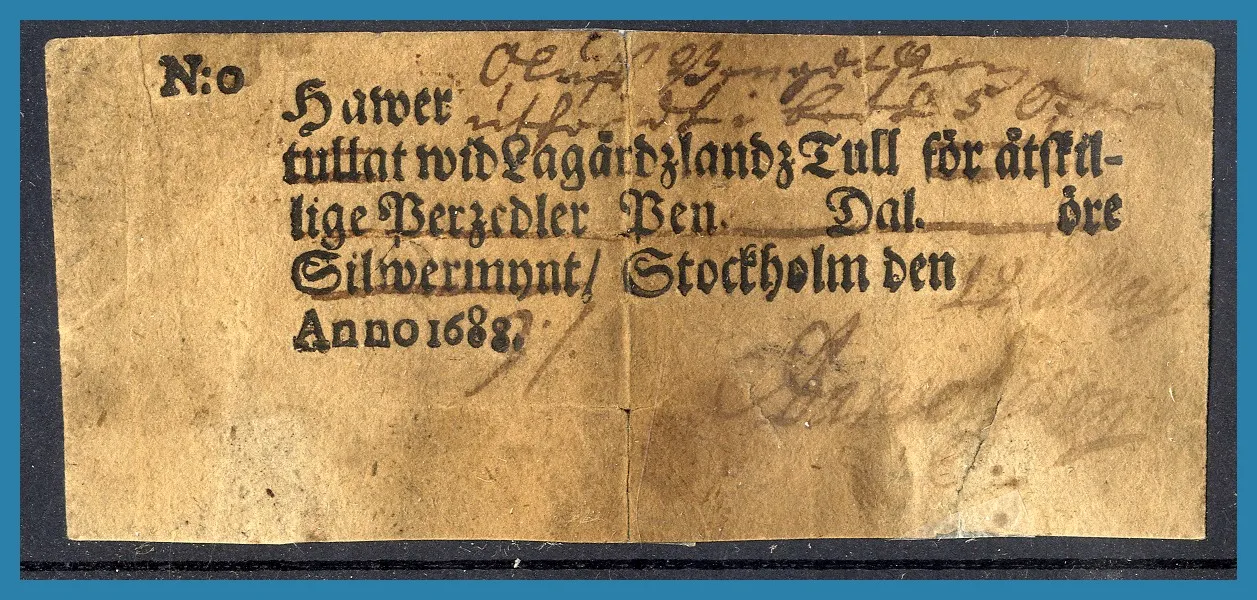 N:o
Oluff
Hawer
tullat wid Lagårdzlandz Tull för åtskil-
lige Perzedler Pen. Dal. öre
Silwermynt/ Stockholm den 12 May
Anno 1688.